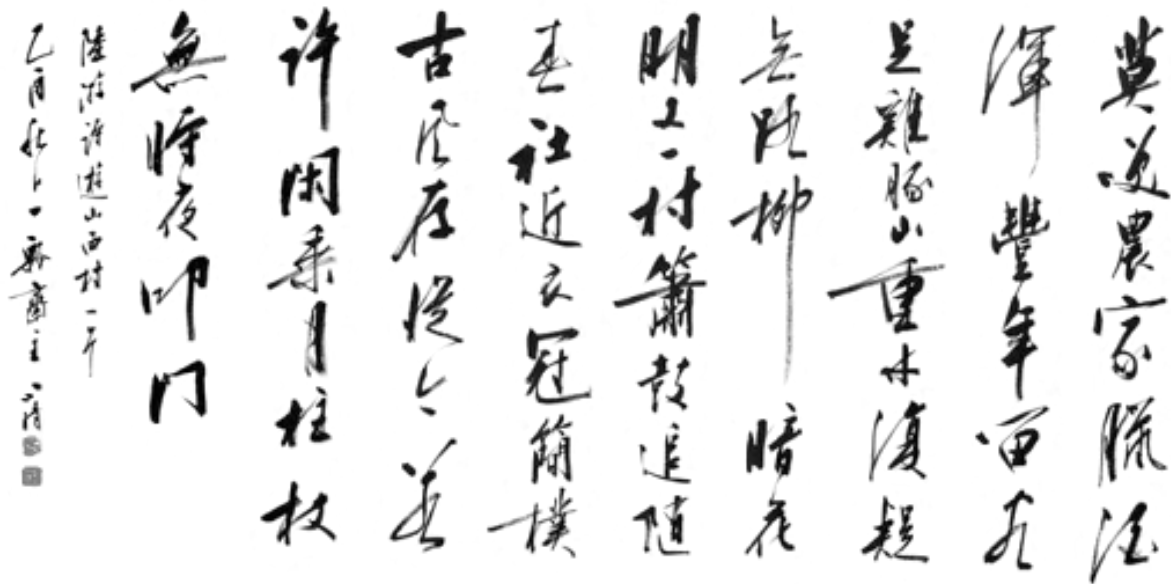 莫笑農家臘酒
渾豐年留客
足雞豚山重水復疑
無路柳暗花
明又一村簫鼓追隨
春社近衣冠簡樸
古風存從今若
許閑乘月拄杖
無時夜叩門
陸游詩遊山西村一首
乙酉秋八一齋主